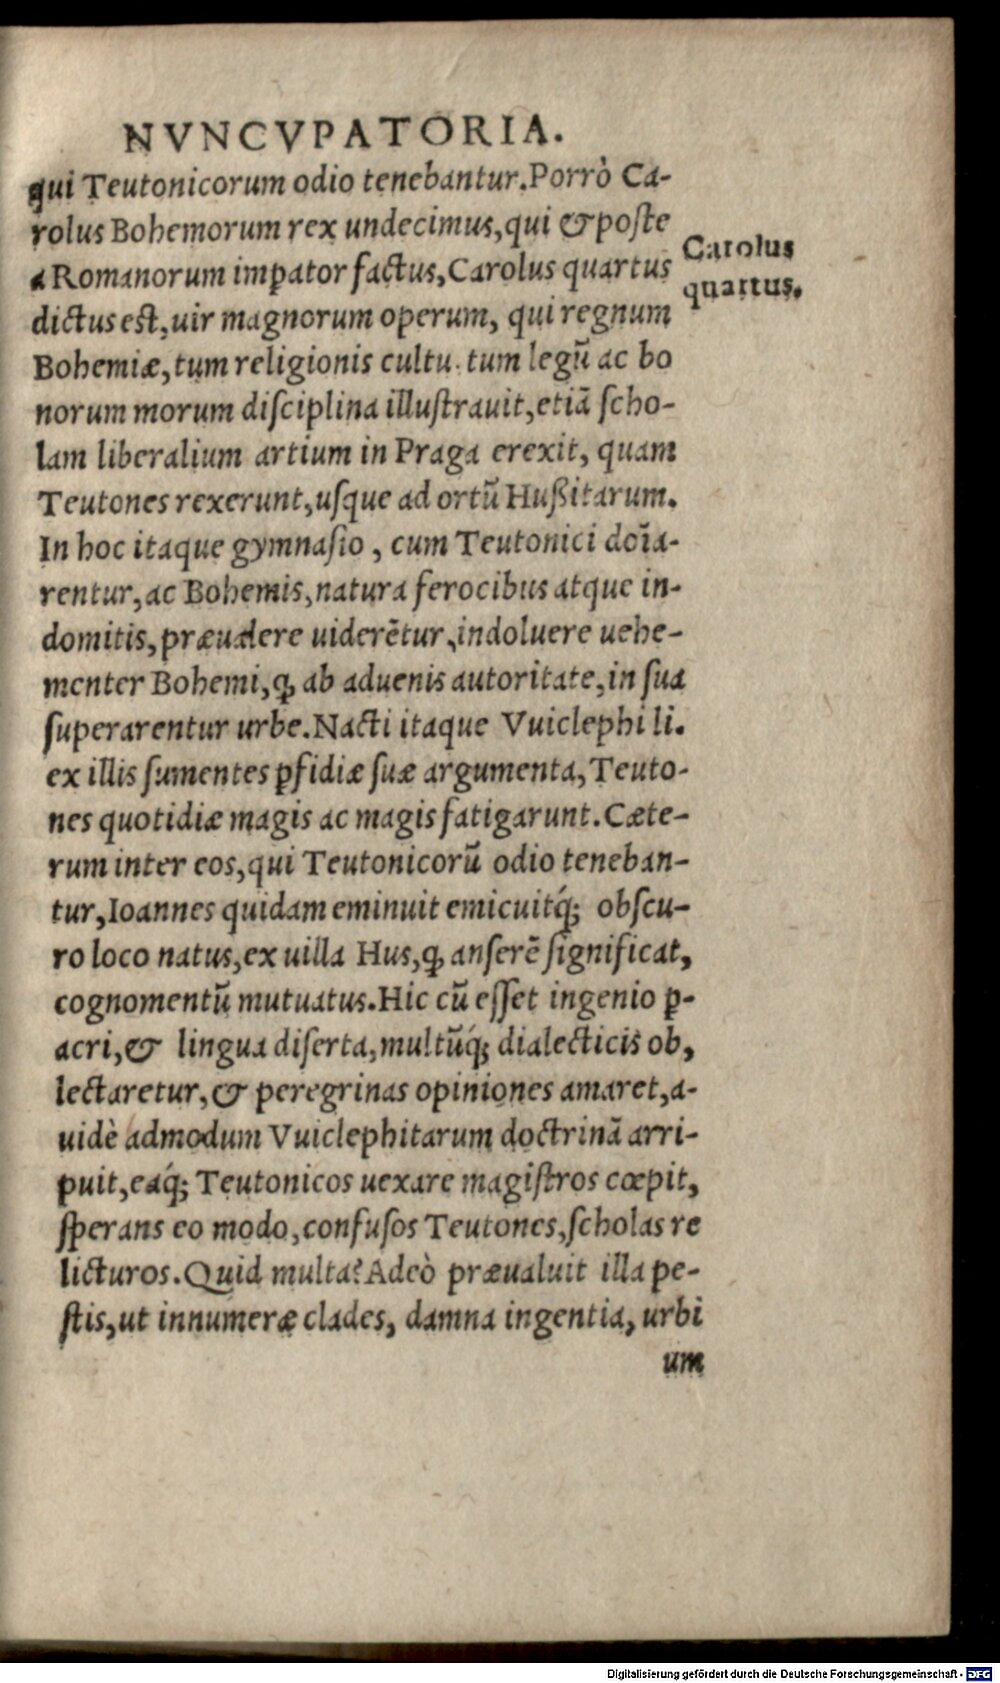 NVNCVPATORIA.
qui Teutonicorum odio tenebantur. Porrò Ca-
rolus Bohemorum rex undecimus, qui & poste
a Romanorum imꝑator factus, Carolus quartus
Carolus
quartus.
dictus est, uir magnorum operum, qui regnum
Bohemiæ, tum religionis cultu, tum legũ ac bo
norum morum disciplina illustrauit, etiã scho-
lam liberalium artium in Praga erexit, quam
Teutones rexerunt, usque ad ortũ Hußitarum.
In hoc itaque gymnasio, cum Teutonici doĩa-
rentur, ac Bohemis, natura ferocibus atque in-
domitis, præualere uiderẽtur, indoluere uehe-
menter Bohemi, ꝙ ab aduenis autoritate, in sua
superarentur urbe. Nacti itaque Vuiclephi li.
ex illis sumentes ꝑfidiæ suæ argumenta, Teuto-
nes quotidiæ magis ac magis fatigarunt. Cæte-
rum inter eos, qui Teutonicorũ odio teneban-
tur, Ioannes quidam eminuit emicuitq́; obscu-
ro loco natus, ex uilla Hus, ꝙ anserẽ significat,
cognomentũ mutuatus. Hic cũ esset ingenio ꝑ-
acri, & lingua diserta, multũq́; dialecticis ob,
lectaretur, & peregrinas opiniones amaret, a-
uidè admodum Vuiclephitarum doctrinã arri-
puit, eaq́; Teutonicos uexare magistros cœpit,
sperans eo modo, confusos Teutones, scholas re
licturos. Quid multa? Adeò præualuit illa pe-
stis, ut innumeræ clades, damna ingentia, urbi
um
Digitalisierung gefördert durch die Deutsche Forschungsgemeinschaft - DFG